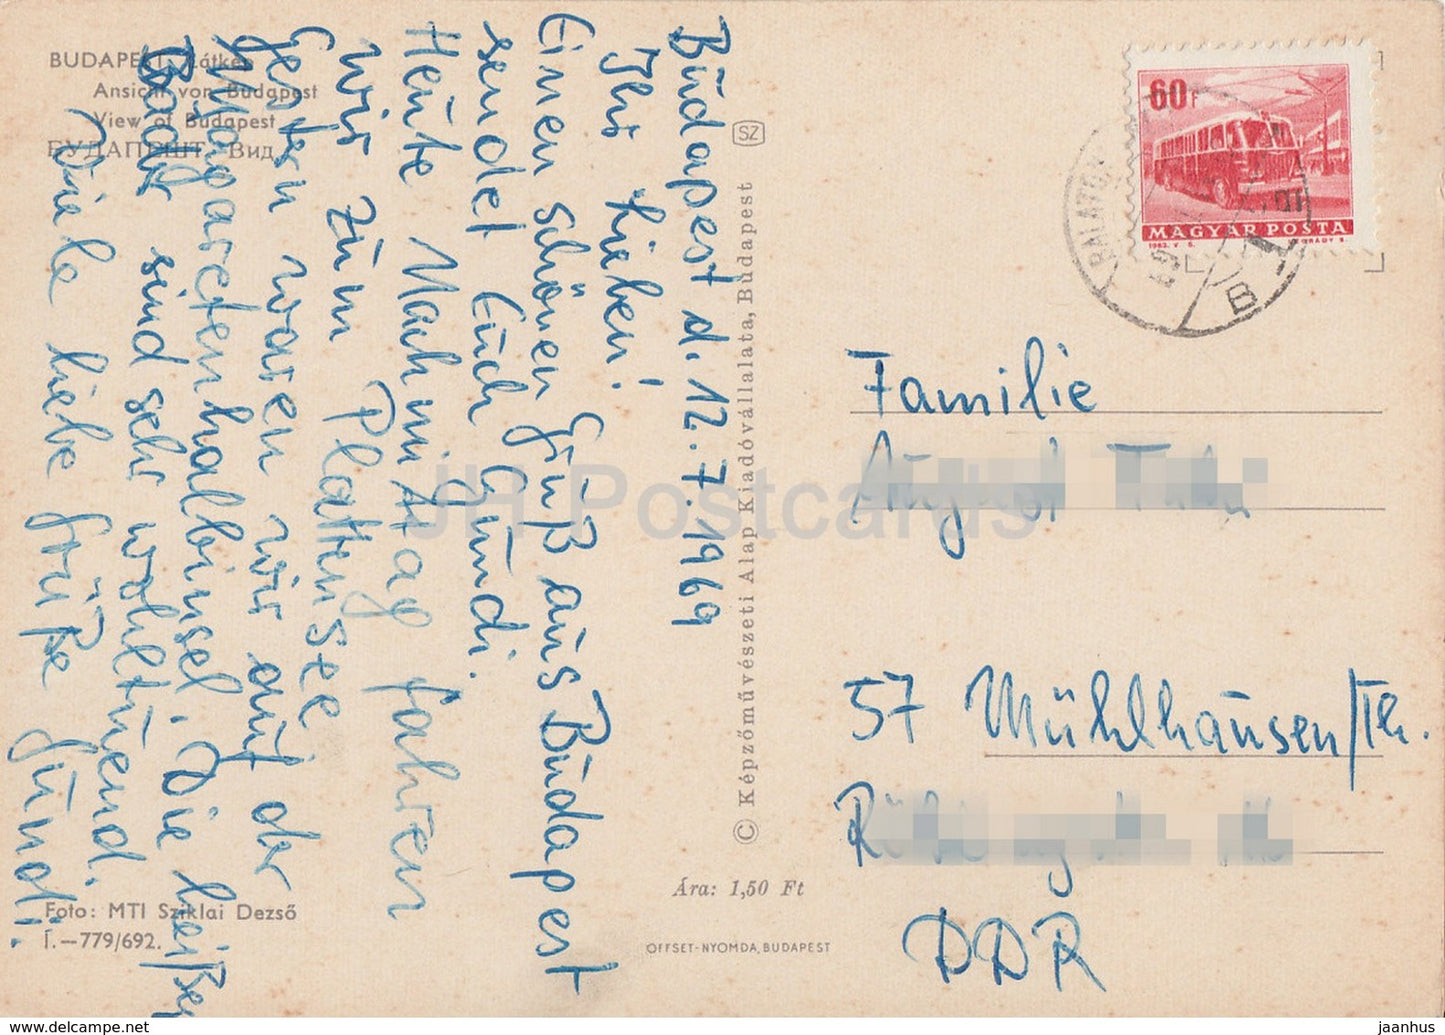 BUDAPEST Látkép
Ansicht von Budapest
View of Budapest
БУДАПЕШТ Вид
Budapest d. 12.7.1969
Ihr Lieben!
Einen schönen Gruß aus Budapest
sendet Euch Gundi.
Heute Nachmittag fahren
wir zum Plattensee
Gestern waren wir auf der
Margaretenhalbinsel. Die heißen
Bäder sind sehr wohltuend.
Viele liebe Grüße Gundi.
Foto: MTI Sziklai Dezső
I.—779/692.
SZ
© Képzőművészeti Alap Kiadóvállalata, Budapest
Ára: 1,50 Ft
OFFSET-NYOMDA, BUDAPEST
60f
MAGYAR POSTA
1963. V. 5.
BALATON
69
B
Familie
57 Mühlhausen/Th.
DDR
JH Postcards
www.delcampe.net
jaanhus